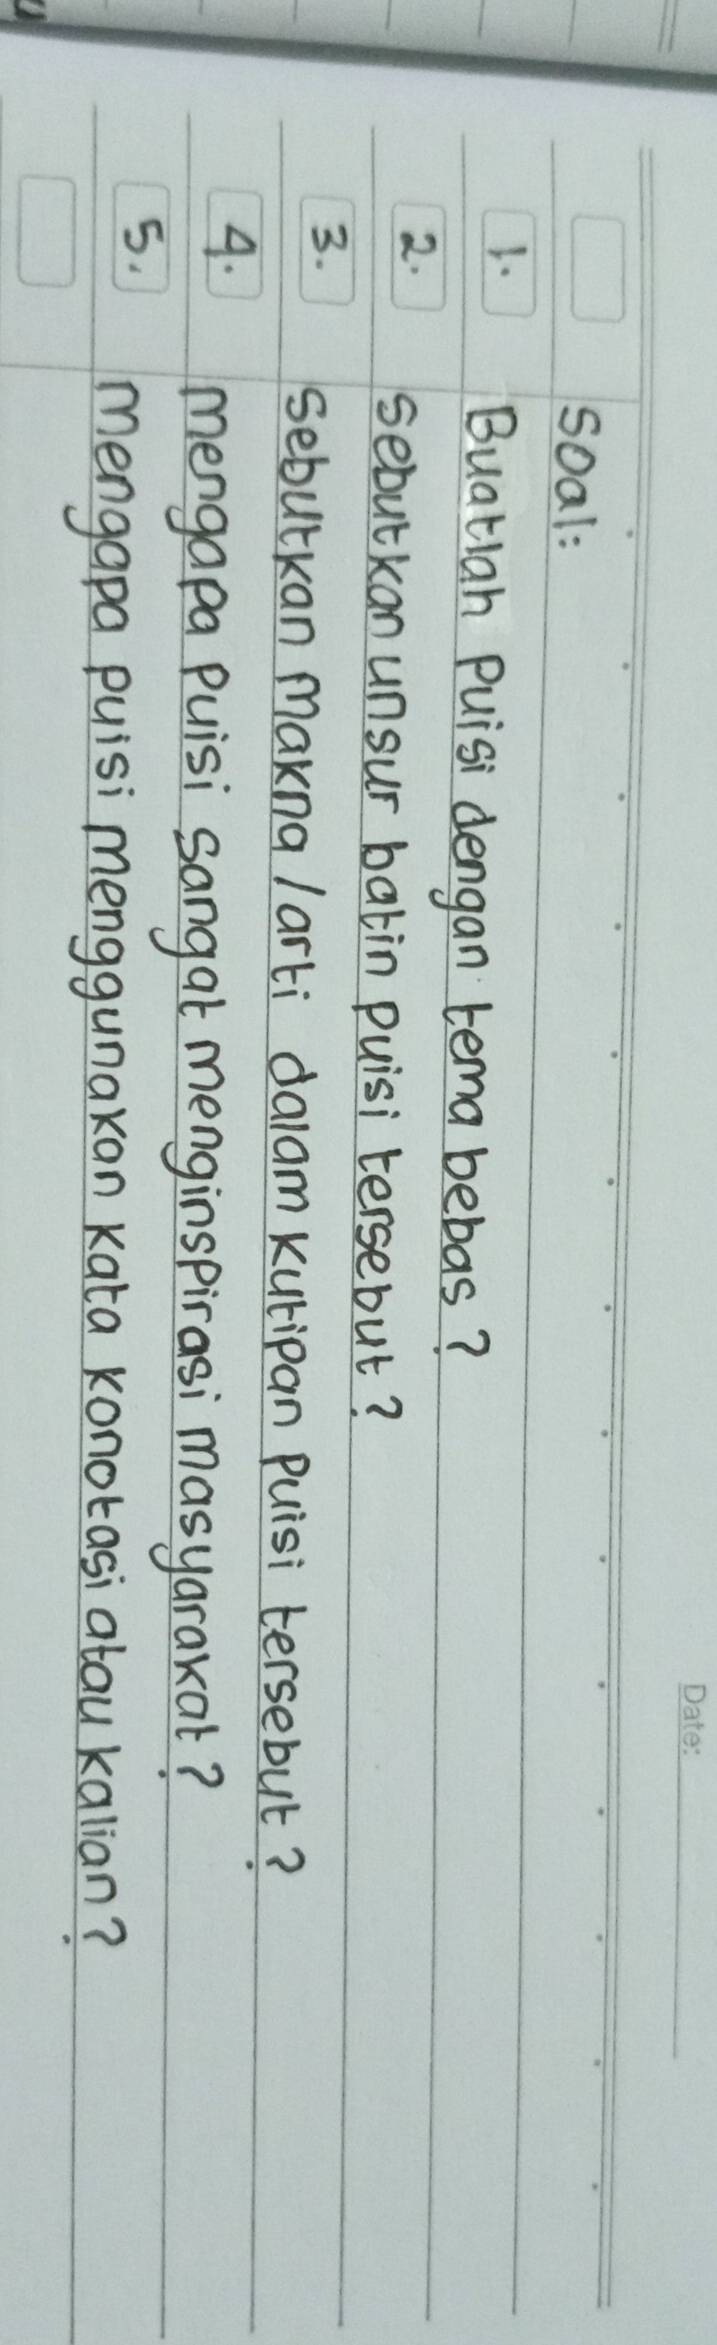 Date:
Soal:
1. Buatlah Puisi dengan tema bebas?
2. Sebutkan unsur batin Puisi tersebut?
3. Sebutkan Makna/arti dalam kutipan Puisi tersebut?
4. Mengapa Puisi sangat menginspirasi masyarakat?
5. Mengapa puisi menggunakan kata konotasi atau kalian?